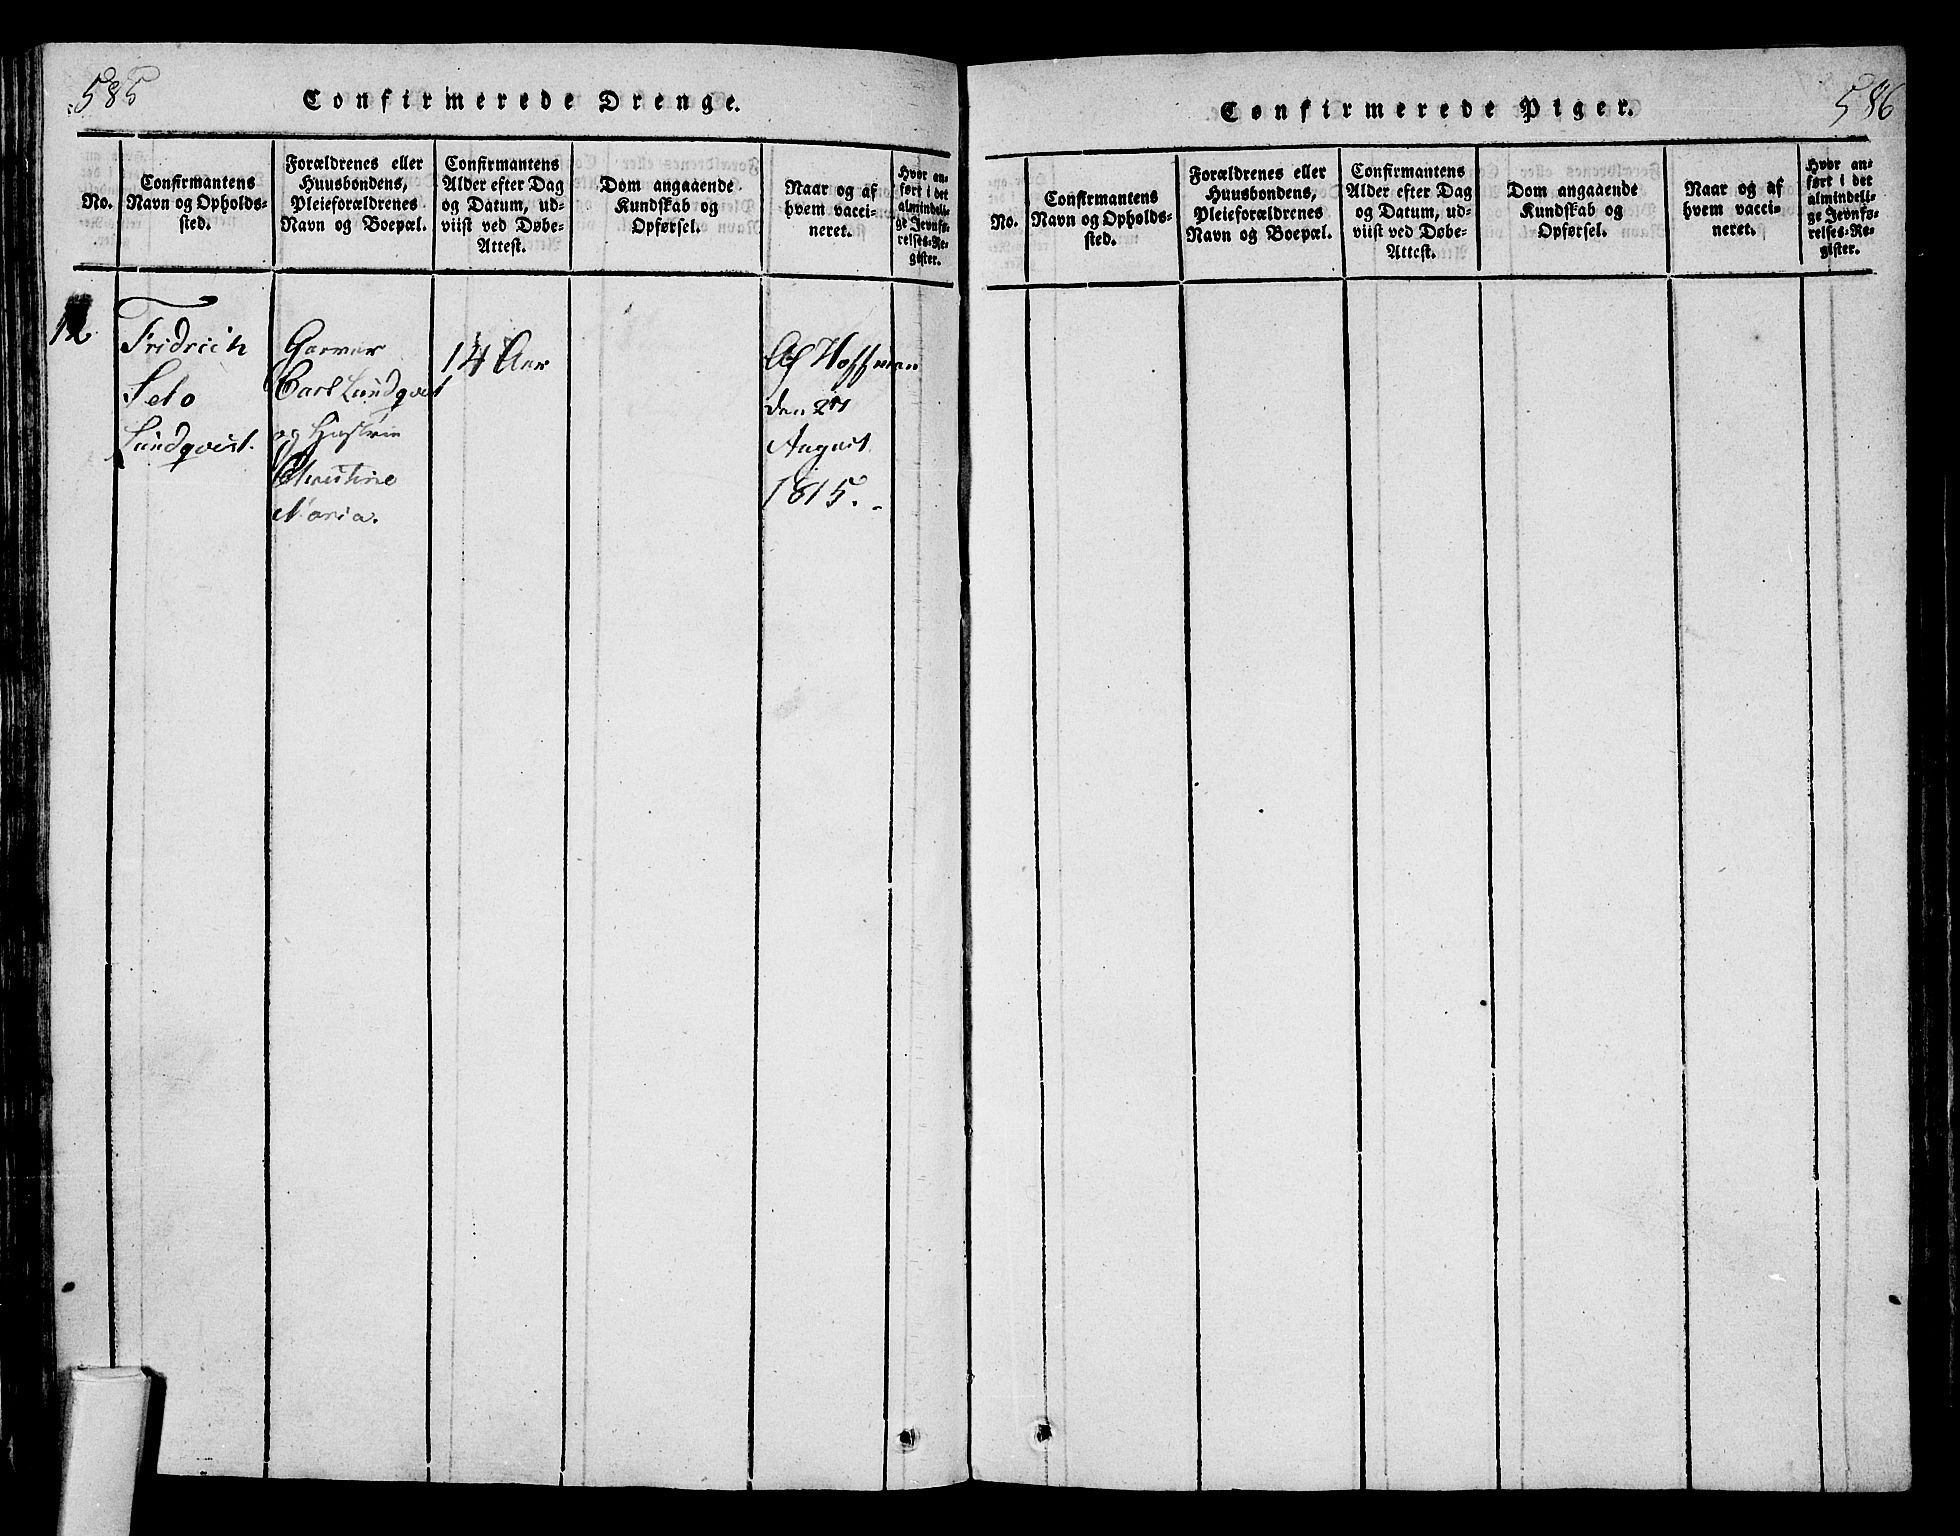 585
Confirmerede Drenge.
No.
Confirmantens
Navn og Opholds-
sted.
Forældrenes eller
Huusbondens,
Pleieforældrenes
Navn og Boepæl.
Confirmantens
Alder efter Dag
og Datum, ud-
viist ved Døbe-
Attest.
Dom angaaende
Kundskab og
Opførsel.
Naar og af
hvem vacci-
neret.
Hvor an-
ført i det
almindeli-
ge Jevnfø-
relses-Re-
gister.
12
Fridrich
Lundqvist.
Garver
Carl Lundqvist
og Hustrue
Christine
Maria.
14 Aar
Af Hoffman
den
August
1815.
586
Confirmerede Piger.
No.
Confirmantens
Navn og Opholds-
sted.
Forældrenes eller
Huusbondens,
Pleieforældrenes
Navn og Boepæl.
Confirmantens
Alder efter Dag
og Datum, ud-
viist ved Døbe-
Attest.
Dom angaaende
Kundskab og
Opførsel.
Naar og af
hvem vacci-
neret.
Hvor an-
ført i det
almindeli-
ge Jevnfø-
relses-Re-
gister.